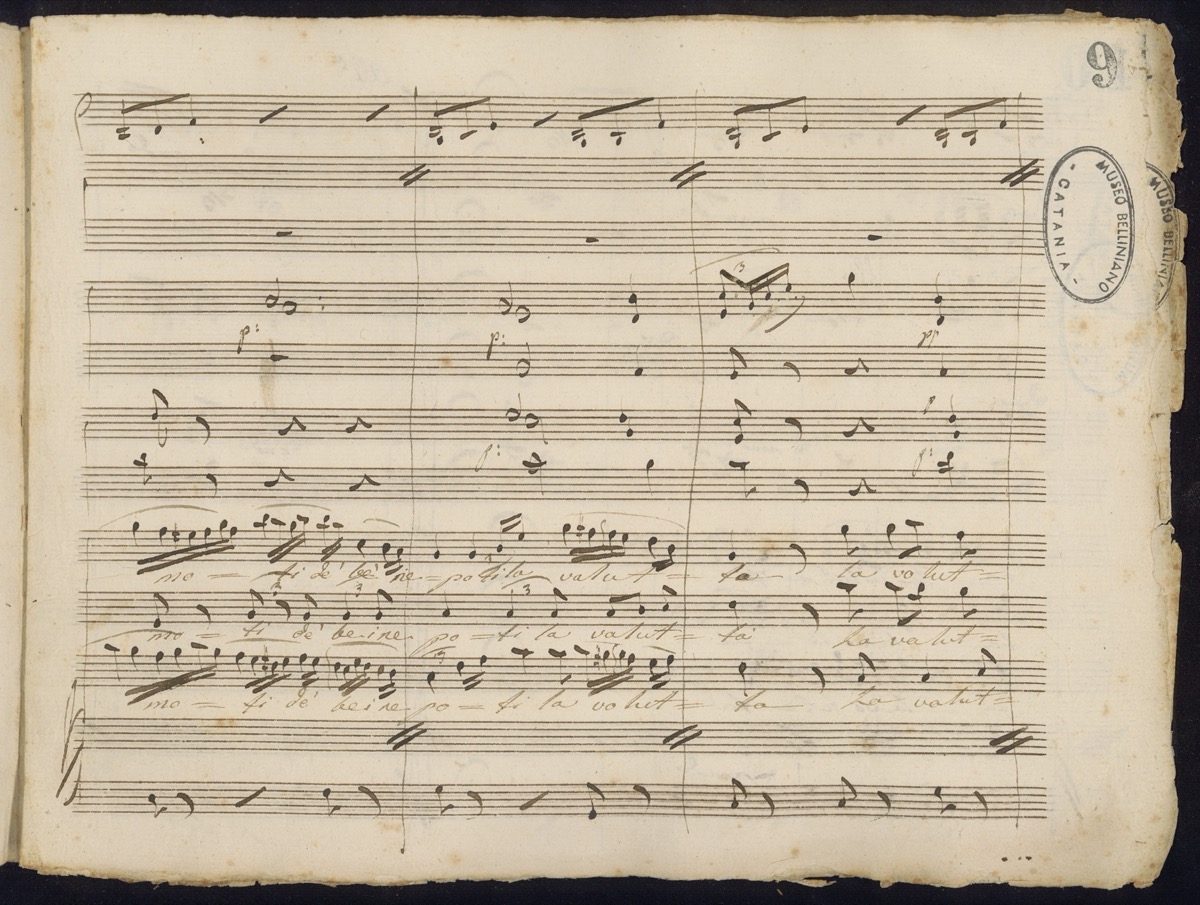 9
MUSEO BELLINIANO
- CATANIA -
MUSEO BELLINI
3
p:
p:
pp
p
p:
p:
mo = ti dè be ne = po ti la valut = ta la volut =
3 3 3
mo = ti dè be ine po = ti la valut = tà La valut =
3
mo = ti dè be ine po = ti la volut = ta La valut =